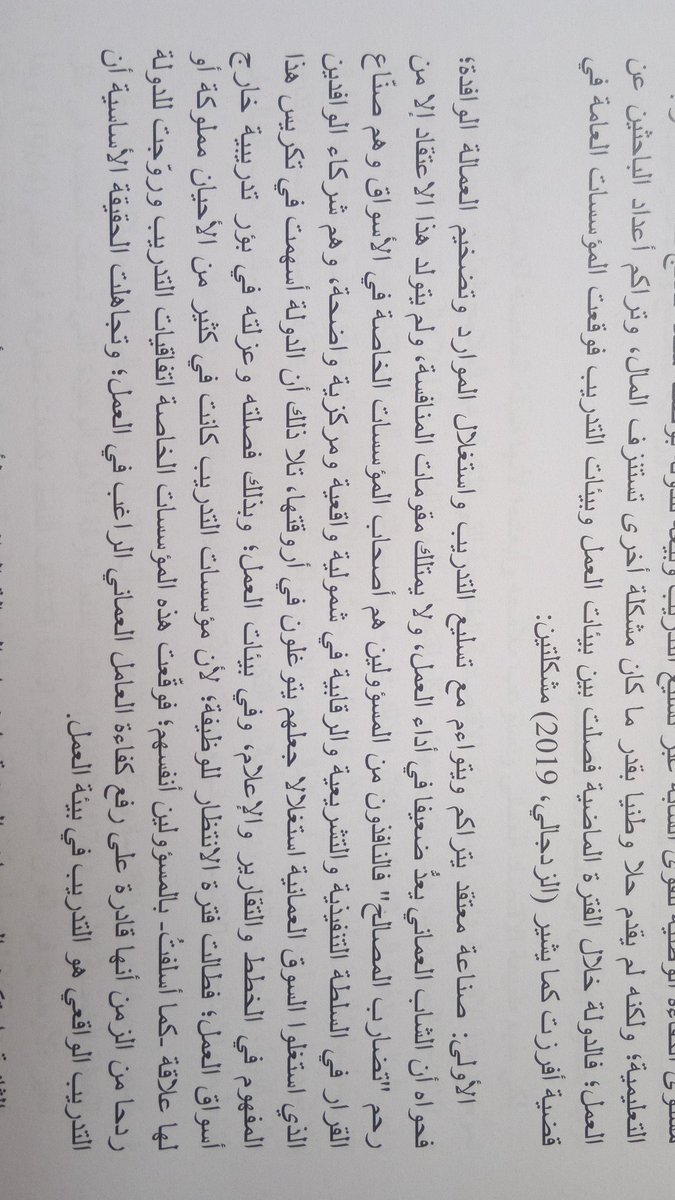 التعليمية؛ ولكنه لم يقدم حلا وطنيا بقدر ما كان مشكلة أخرى تستنزف المال، وتراكم أعداد الباحثين عن
العمل؛ فالدولة خلال الفترة الماضية فصلت بين بيئات العمل وبيئات التدريب فوقعت المؤسسات العامة في
قضية أفرزت كما يشير (الزدجالي، 2019) مشكلتين:
الأولى: صناعة معتقد يتراكم ويتواءم مع تسليع التدريب واستغلال الموارد وتضخيم العمالة الوافدة؛
فحواه أن الشاب العماني يعدُّ ضعيفا في أداء العمل، ولا يمتلك مقومات المنافسة، ولم يتولد هذا الاعتقاد إلا من
رحم "تضارب المصالح" فالنافذون من المسؤولين هم أصحاب المؤسسات الخاصة في الأسواق وهم صنّاع
القرار في السلطة التنفيذية والتشريعية والرقابية في شمولية واقعية ومركزية واضحة، وهم شركاء الوافدين
الذي استغلوا السوق العمانية استغلالا جعلهم يتوغلون في أروقتها، تلا ذلك أن الدولة أسهمت في تكريس هذا
المفهوم في الخطط والتقارير والإعلام، وفي بيئات العمل؛ وبذلك فصلته وعزلته في بؤر تدريبية خارج
أسواق العمل؛ فطالت فترة الانتظار للوظيفة؛ لأن مؤسسات التدريب كانت في كثير من الأحيان مملوكة أو
لها علاقة -كما أسلفتُ- بالمسؤولين أنفسهم؛ فوقّعت هذه المؤسسات الخاصة اتفاقيات التدريب وروّجت للدولة
ردحا من الزمن أنها قادرة على رفع كفاءة العامل العماني الراغب في العمل؛ وتجاهلت الحقيقة الأساسية أن
التدريب الواقعي هو التدريب في بيئة العمل.